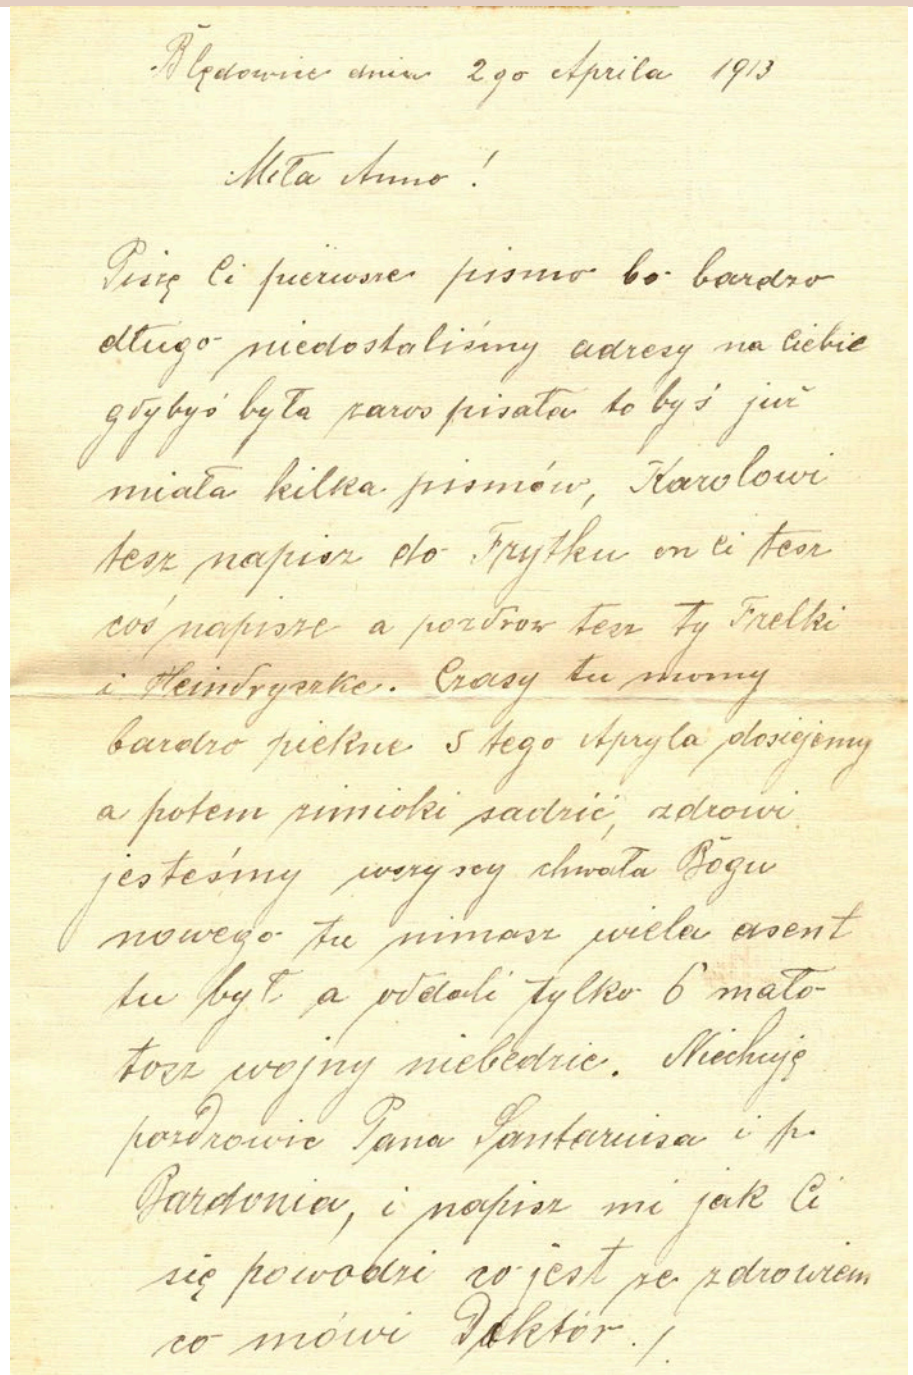 Błędowice dnia 2go Aprila 1913
Miła Anno!
Piszę Ci pierwsze pismo bo bardzo
długo niedostaliśmy adresy na Ciebie
gdybyś była zaros pisała to byś już
miała kilka pismów, Karolowi
tesz napisz do Frytku on Ci tesz
coś napisze a pozdrow tesz ty Frelki
i Heindryszke. Czasy tu momy
bardzo piekne 5 tego Apryla dosiejemy
a potem zimioki sadzić, zdrowi
jesteśmy wszyscy chwała Bogu
nowego tu nimasz wiela asent
tu był a oddali tylko 6 mało
tosz wojny niebedzie. Niechuję
pozdrowic Pana Santariusa i p.
Bardonia, i napisz mi jak Ci
się powodzi co jest ze zdrowiem
co mówi Doktór.!